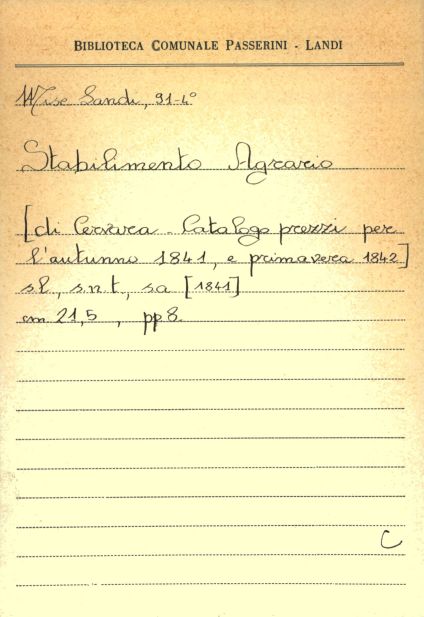 BIBLIOTECA COMUNALE PASSERINI - LANDI
Misc Landi, 91-4°
Stabilimento Agrario
[di Cervara Catalogo prezzi per
l'autunno 1841, e primavera 1842]
sl, snt, sa [1841]
cm 21,5, pp 8
C